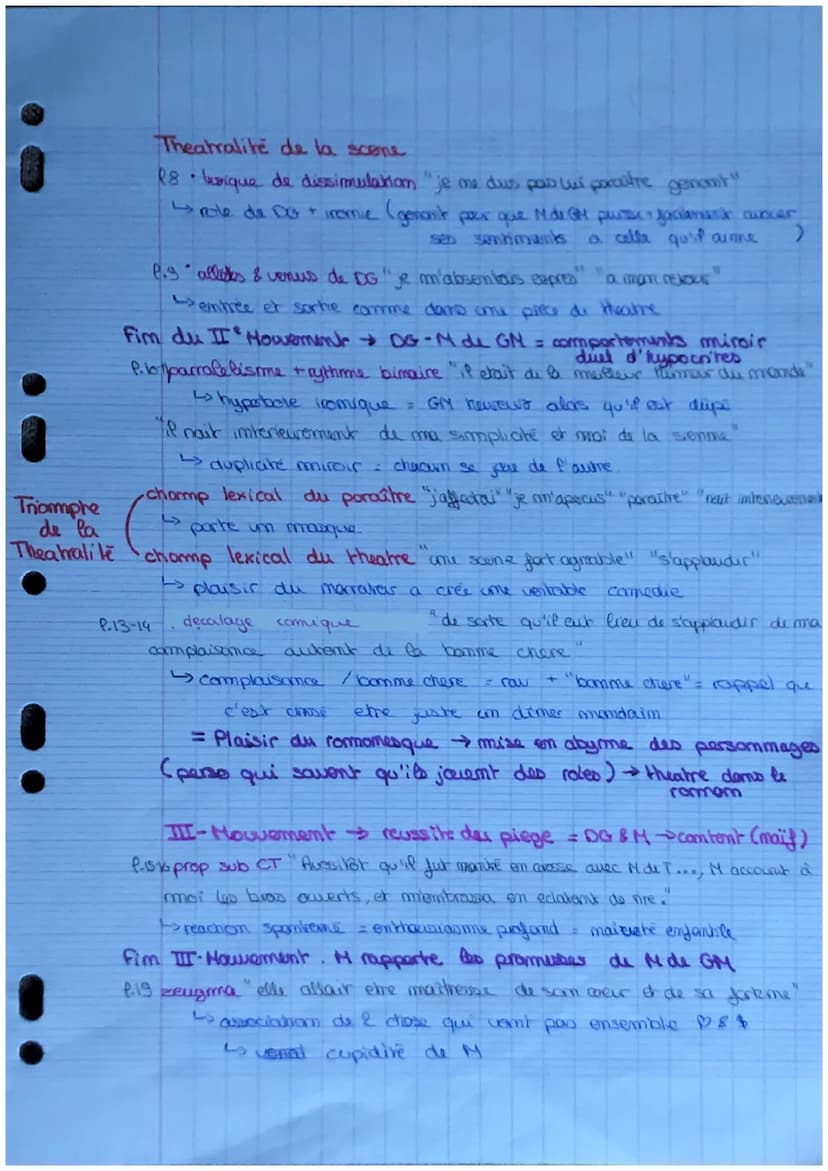 Theatralité de la scene
l.8 • lexique de dissimulation "je me dus pas lui paraitre genant"
↳ role de DG + ironie (genant pour que M de GM puisse facilement avouer
ses sentiments a celle qu'il aime )
l.9 • allées & venues de DG "je m'absentais expres" "a mon retour"
↳ entrée et sortie comme dans une pièce de theatre
Fin du II° Mouvement → DG - M de GM = comportements miroir
duel d'hypocrites
l.10 parralelisme + rythme binaire "il etait de la meilleur humeur du monde"
↳ hyperbole ironique = GM heureux alors qu'il est dupé
"il riait interieurement de ma simplicité et moi de la sienne"
↳ duplicité miroir = chacun se joue de l'autre
champ lexical du paraître "j'affectai" "je m'apercus" "paraitre" "riait interieurement
↳ porte un masque
Triomphe
de la
Theatralité
champ lexical du theatre "une scene fort agreable" "s'applaudir"
↳ plaisir du narrateur a crée une veritable comedie
l.13-14 . decalage comique "de sorte qu'il eut lieu de s'applaudir de ma
complaisance autant de la bonne chere"
↳ complaisance / bonne chere = + "bonne chere" = rappel que
c'est censé etre juste un diner mondain
= Plaisir du romanesque → mise en abyme des personnages
(perso qui savent qu'ils jouent des roles) → theatre dans le
roman
III - Mouvement → reussite du piege = DG & M → content (naïf)
prop sub CT "Aussitôt qu'il fut monté en carosse avec M de T..., M accourut à
moi les bras ouverts, et m'embrassa en eclatant de rire."
↳ reaction spontané = enthousiasme profond = naiveté enfantile
Fin III - Mouvement . M rapporte les promesses de M de GM
l.19 zeugma "elle allait etre maitresse de son coeur et de sa fortune"
↳ association de 2 chose qui vont pas ensemble ♡ & $
↳ venal cupidité de M